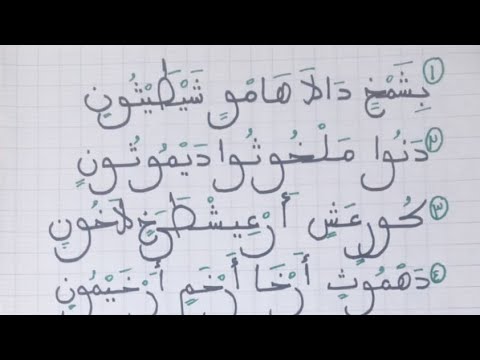 ١ بِشَمْخٍ دَالَاهَامُوٍ شَيْطَيْثُونٍ
٢ دَنُوا مَلْخُوثُوا دَيْمُوثُونٍ
٣ كُورِعَشٍ أَرْعِيشْطَخٍ لَاخُونٍ
٤ دَهْمُوثٍ أَرْخَا أَرْخَمٍ أَرْخَيْمُونٍ